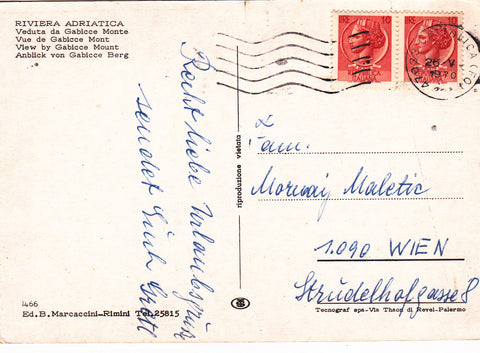 RIVIERA ADRIATICA
Veduta da Gabicce Monte
Vue de Gabicce Mont
View by Gabicce Mount
Anblick von Gabicce Berg
Recht liebe Urlaubsgrüße
sendet Euch Gretl
1466
Ed. B. Marcaccini-Rimini Tel. 25815
riproduzione vietata
10
10
26-V
1970
Fam.
Maletic
1090 WIEN
Strudelhofgasse 8
Tecnograf spa-Via Thaon di Revel-Palermo